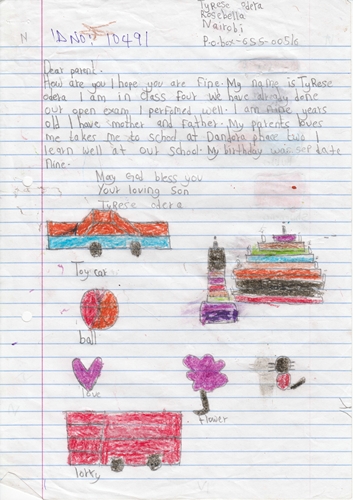 Tyrese odera
Rosebella
Nairobi
P.o.box-656-00516
N
IDNO: 10491
Dear parent.
How are you I hope you are fine. My name is TyRese
odera I am in class four we have already done
our open exam I perfomed well. I am nine years
old I have mother and father. My parents loves
me takes me to school at Dandora phase two I
learn well at our school. My birthday was sep date
nine.
May God bless you
Your loving son
TyRese odera
Toy car
ball
love
flower
lorry